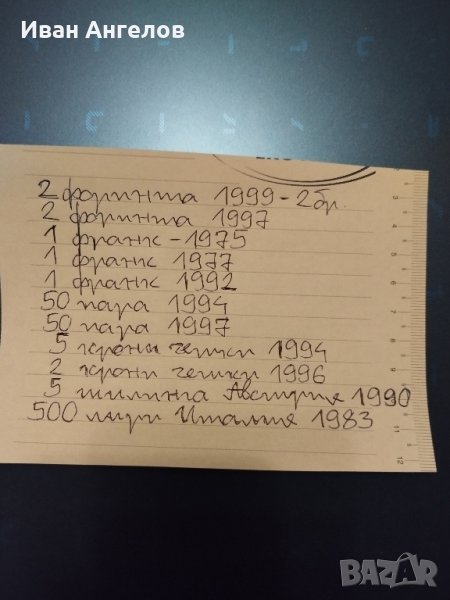 Иван Ангелов
2 форинта 1999-2бр.
2 форинта 1997
1 франк - 1975
1 франк 1977
1 франк 1992
50 пара 1994
50 пара 1997
5 крони чешки 1994
2 крони чешки 1996
5 шилинга Австрия 1990
500 лири Италия 1983
3
4
5
6
7
8
9
10
11
12
BAZAR